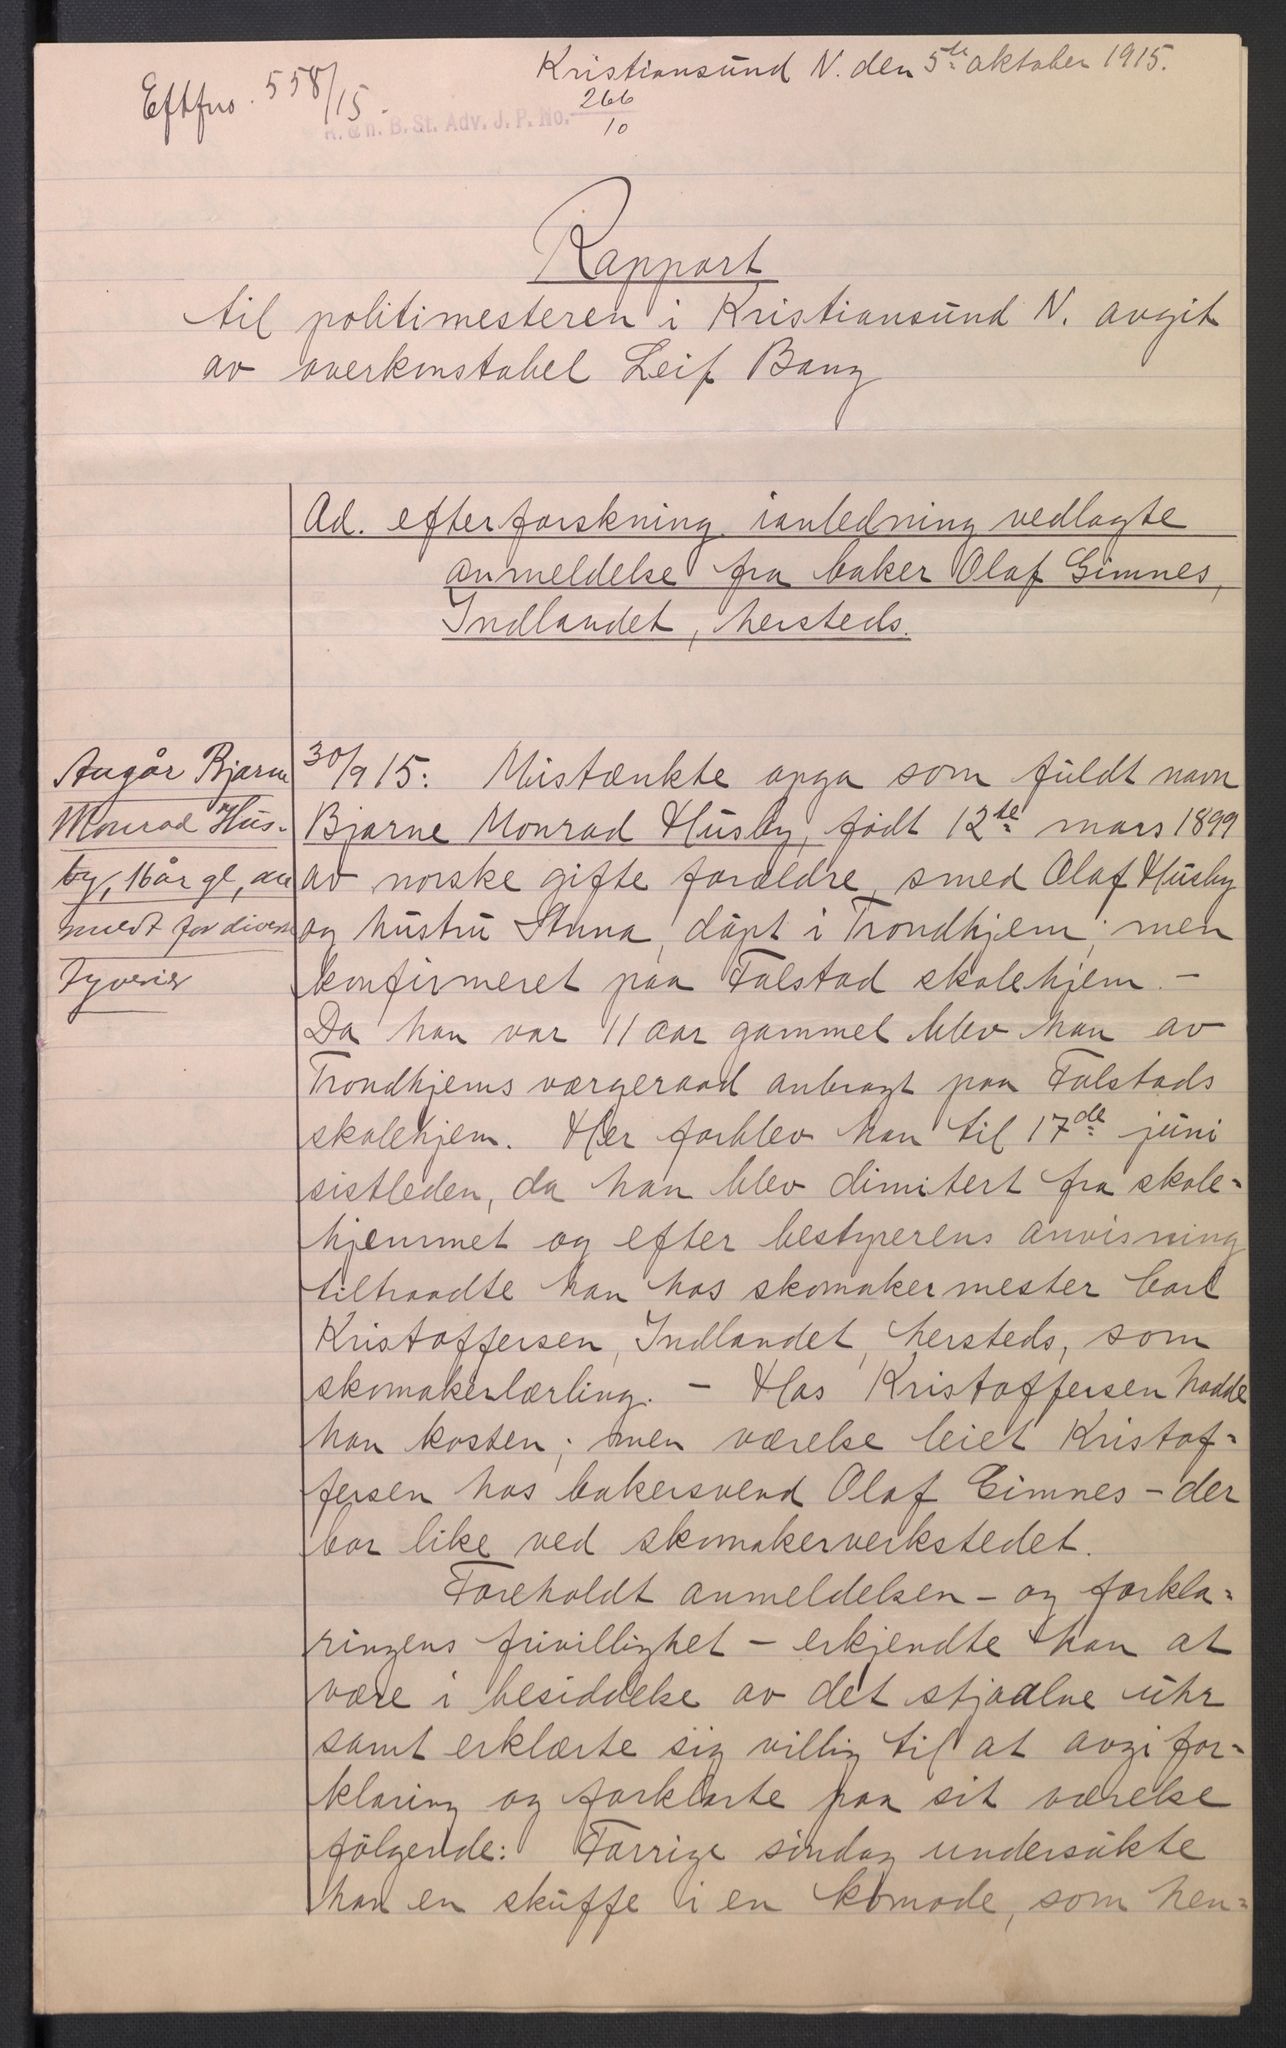 Kristiansund N. den 5te oktober 1915.
Eftfno. 558/15.
R. & N. B. St. Adv. J. P. No. 266/10
Rapport
til politimesteren i Kristiansund N. avgit
av overkonstabel Leif Bang
Ad. efterforskning ianledning vedlagte
anmeldelse fra baker Olaf Gimnes,
Indlandet, hersteds.
Angår Bjarne
Monrad Hus-
by, 16 år gl, an
meldt for diverse
Tyverier
30/9 15: Mistænkte opga som fuldt navn
Bjarne Monrad Husby, født 12te mars 1899
av norske gifte forældre, smed Olaf Husby
og hustru Anna, døpt i Trondhjem; men
konfirmeret paa Falstad skolehjem. -
Da han var 11 aar gammel blev han av
Trondhjems værgeraad anbragt paa Falstads
skolehjem. Her forblev han til 17de juni
sistleden, da han blev dimitert fra skole-
hjemmet og efter bestyrerens anvisning
tiltraadte han hos skomakermester Carl
Kristoffersen, Indlandet, hersteds, som
skomakerlærling. - Hos Kristoffersen hadde
han kosten; men værelse leiet Kristof-
fersen hos bakersvend Olaf Gimnes - der
bor like ved skomakerverkstedet.
Foreholdt anmeldelsen - og forkla-
ringens frivillighet - erkjendte han at
være i besiddelse av det stjaalne uhr
samt erklærte sig villig til at avgi for-
klaring og forklarte paa sit værelse
følgende: Forrige søndag undersøkte
han en skuffe i en komode, som hen-